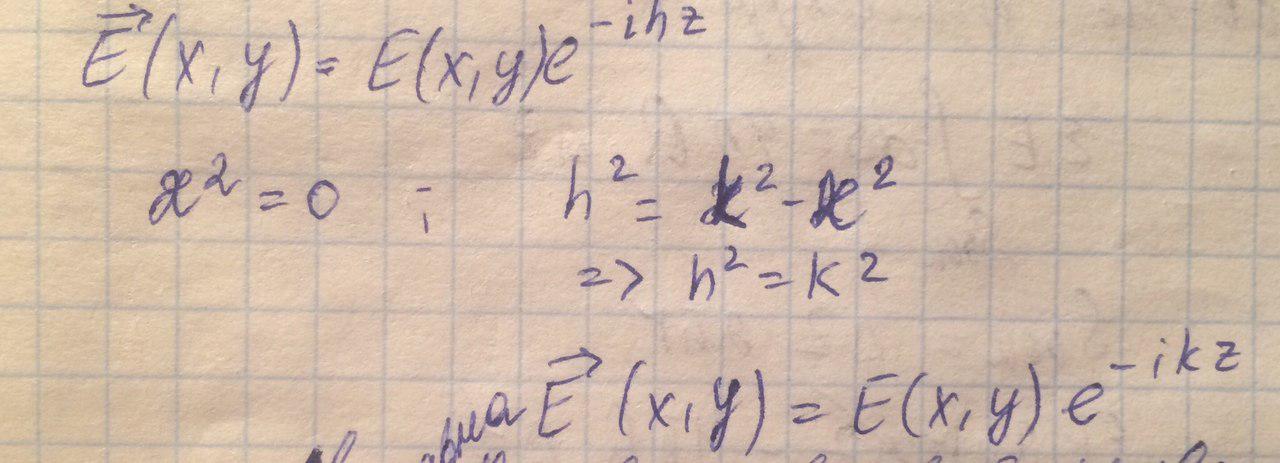 E⃗(x,y) = E(x,y)e^{-ihz}
æ² = 0 ; h² = k² - æ²
=> h² = k²
E⃗(x,y) = E(x,y) e^{-ikz}